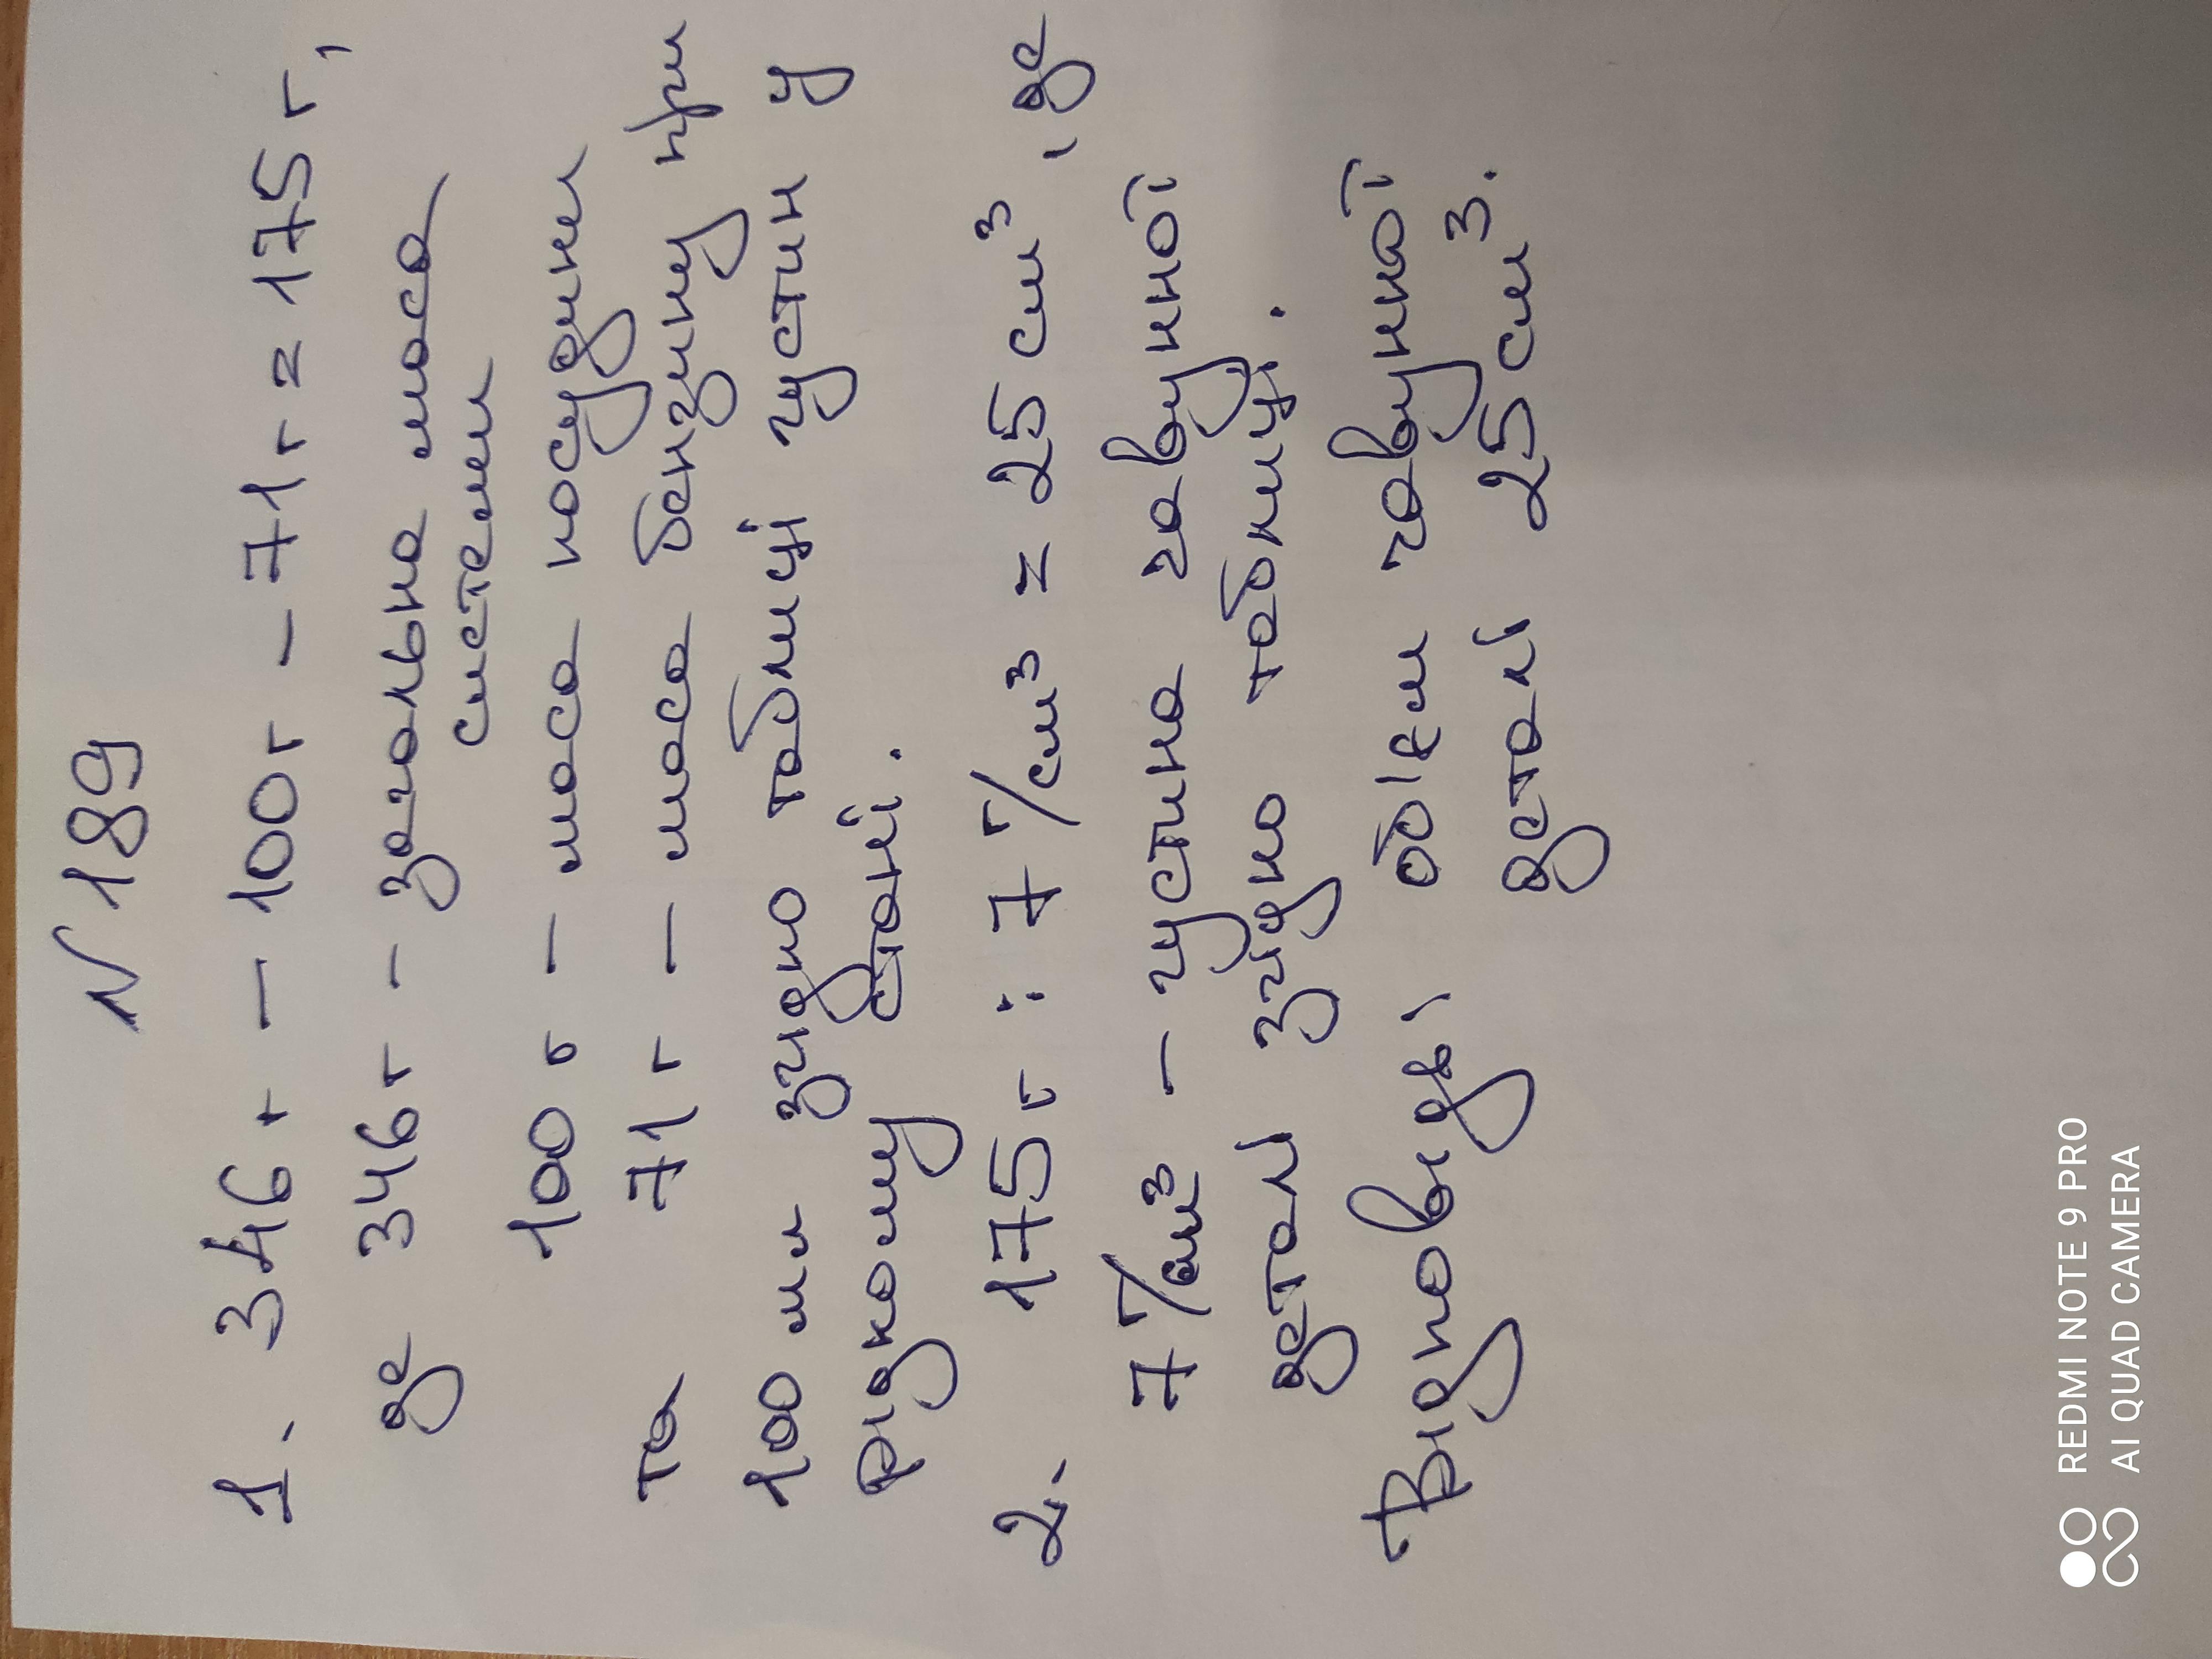 N 189
1. 346 г - 100г - 71г = 175 г,
де 346 г - загальна маса
системи
100 г - маса посудини
та 71 г - маса бензину при
100 мл згідно таблиці густин у
рідкому стані.
2. 175 г : 7 г/см³ = 25 см³, де
7 г/см³ - густина чавунної
деталі згідно таблиці.
Відповідь: об'єм чавунної
деталі 25 см³.
REDMI NOTE 9 PRO
AI QUAD CAMERA